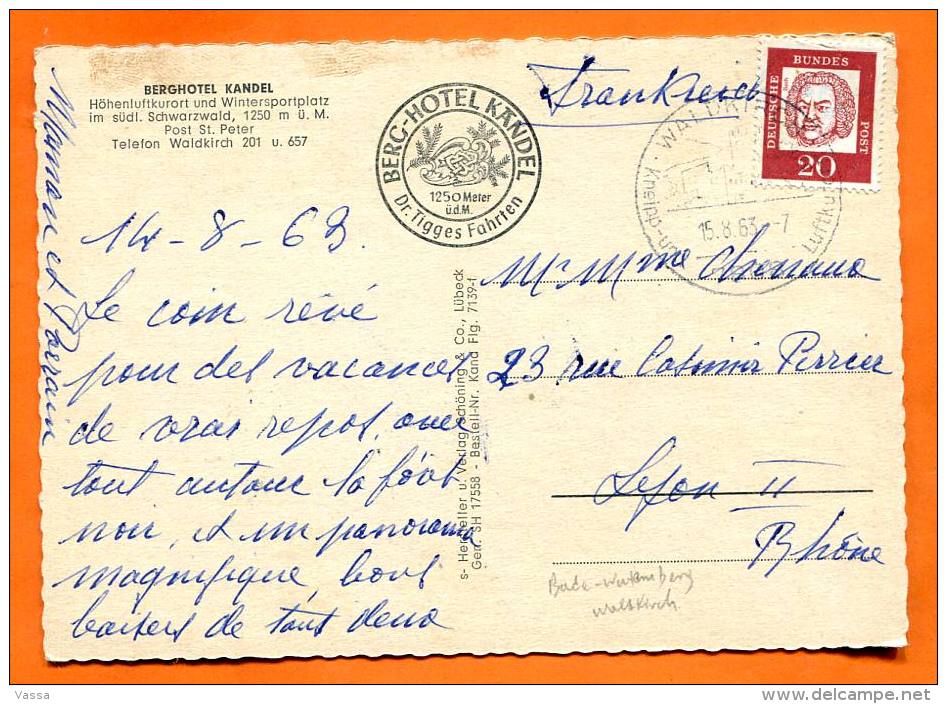 BERGHOTEL KANDEL
Höhenluftkurort und Wintersportplatz
im südl. Schwarzwald, 1250 m ü. M.
Post St. Peter
Telefon Waldkirch 201 u. 657
BERG-HOTEL KANDEL
1250 Meter
ü.d.M.
Dr. Tigges Fahrten
Frankreich
DEUTSCHE BUNDES POST
20
WALDK
15.8.63.-7
Kneipp-un
Luftku
14-8-63.
Le coin rêvé
pour des vacances
de vrai repos, avec
tout autour la fôret
noir, et un panorama
magnifique bons
baisers de tous deux
Maman et Parrain
s- Hersteller u. Verlag Schöning & Co., Lübeck
Gen. SH 17558 - Bestell-Nr. Kand Flg. 7139-f
Mr Mme
23 rue Casimir Perrier
Lyon II
Rhône
Bade-Wurtemberg
Waldkirch.
Vassa
delcampe.net